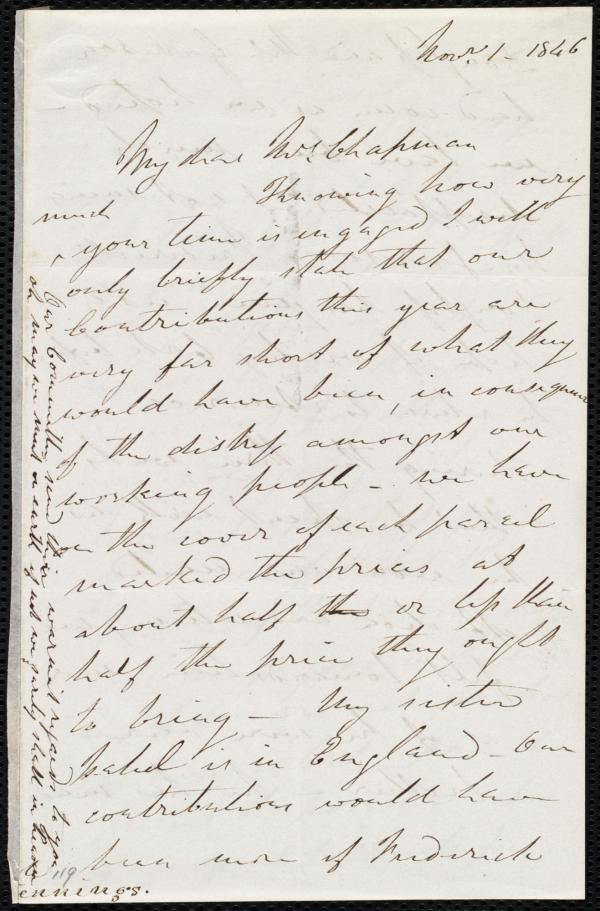 Novr. 1 - 1846
My dear Mrs Chapman
Knowing how very
much
your time is engaged I will
only briefly state that our
Contributions this year are
very far short of what they
would have been, in consequence
of the distress amongst our
working people - we have
on the cover of each parcel
marked the prices at
about half the or less than
half the price they ought
to bring - My sister
Isabel is in England - Our
contributions would have
been more if Frederick
Our Committee send their warmest regards to you
oh may we meet on earth if not we surely shall in heaven
119
ennings.